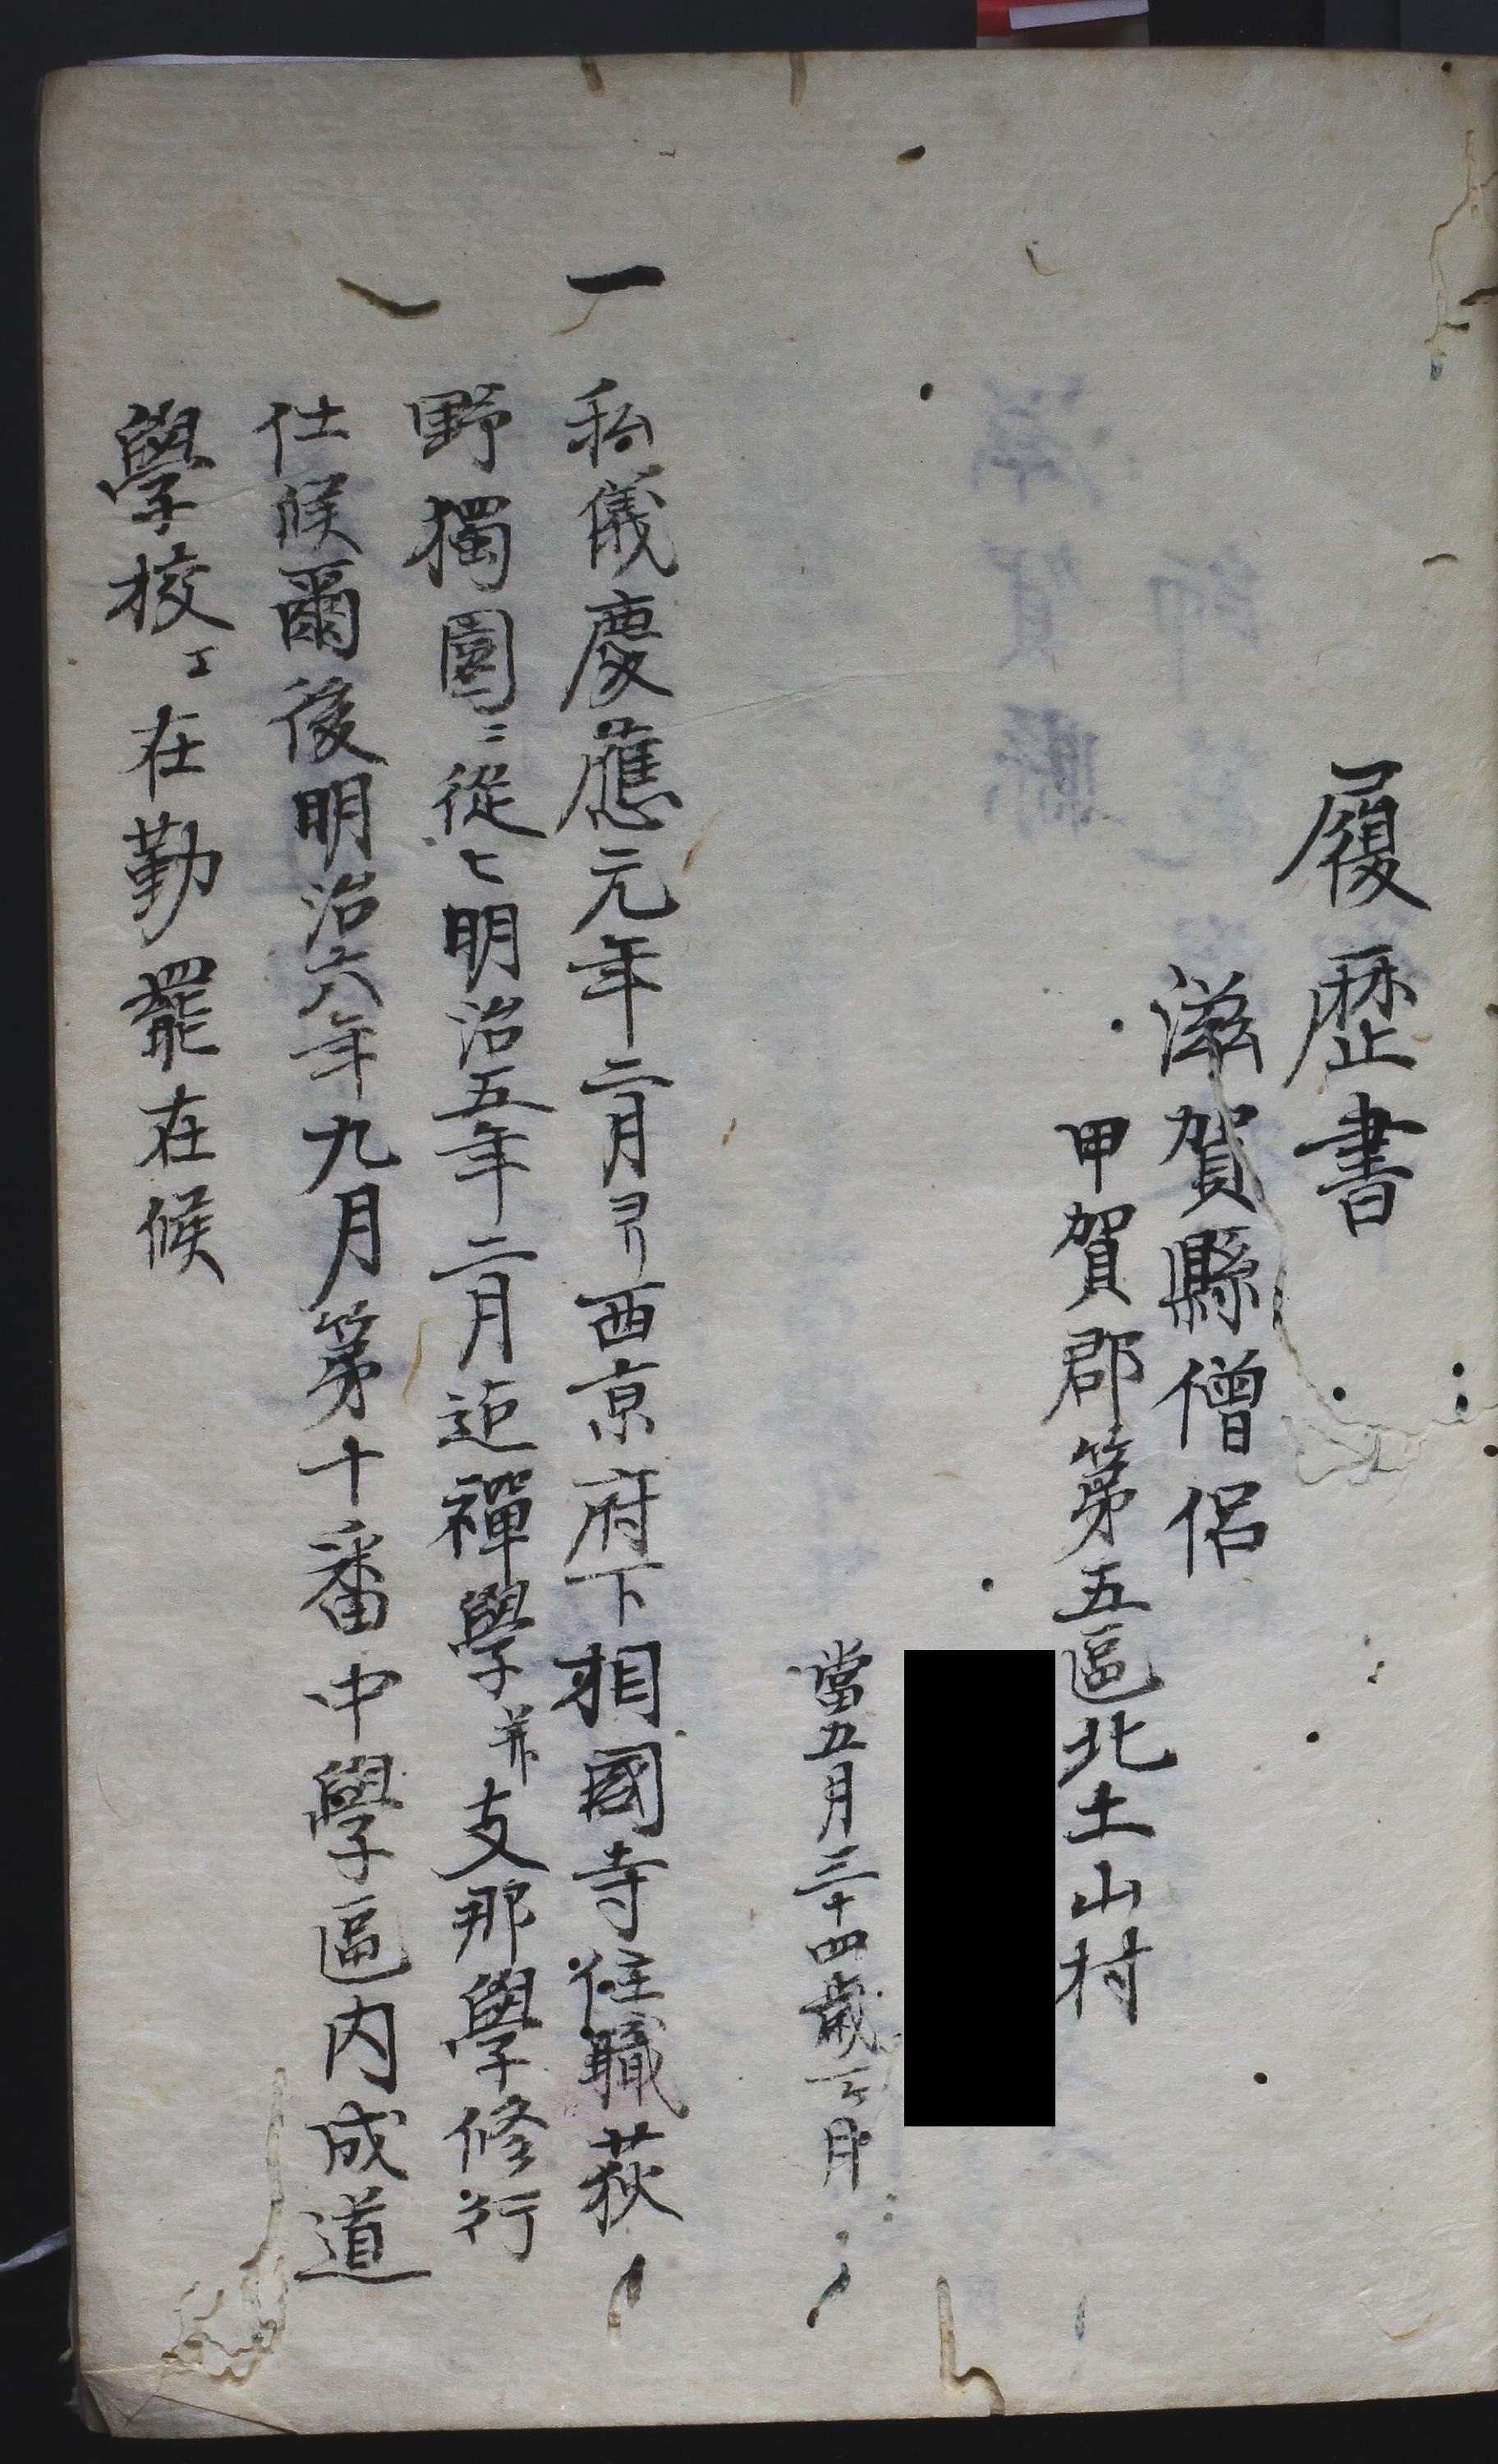 履歴書
滋賀縣僧侶
甲賀郡第五區北土山村
當五月三十四歳一ヶ月
一 私儀慶應元年二月ヨリ西京府下相國寺住職荻
野獨園ニ從ヒ明治五年二月迄禪學並支那學修行
仕候爾後明治六年九月第十番中學區内成道
學校エ在勤罷在候